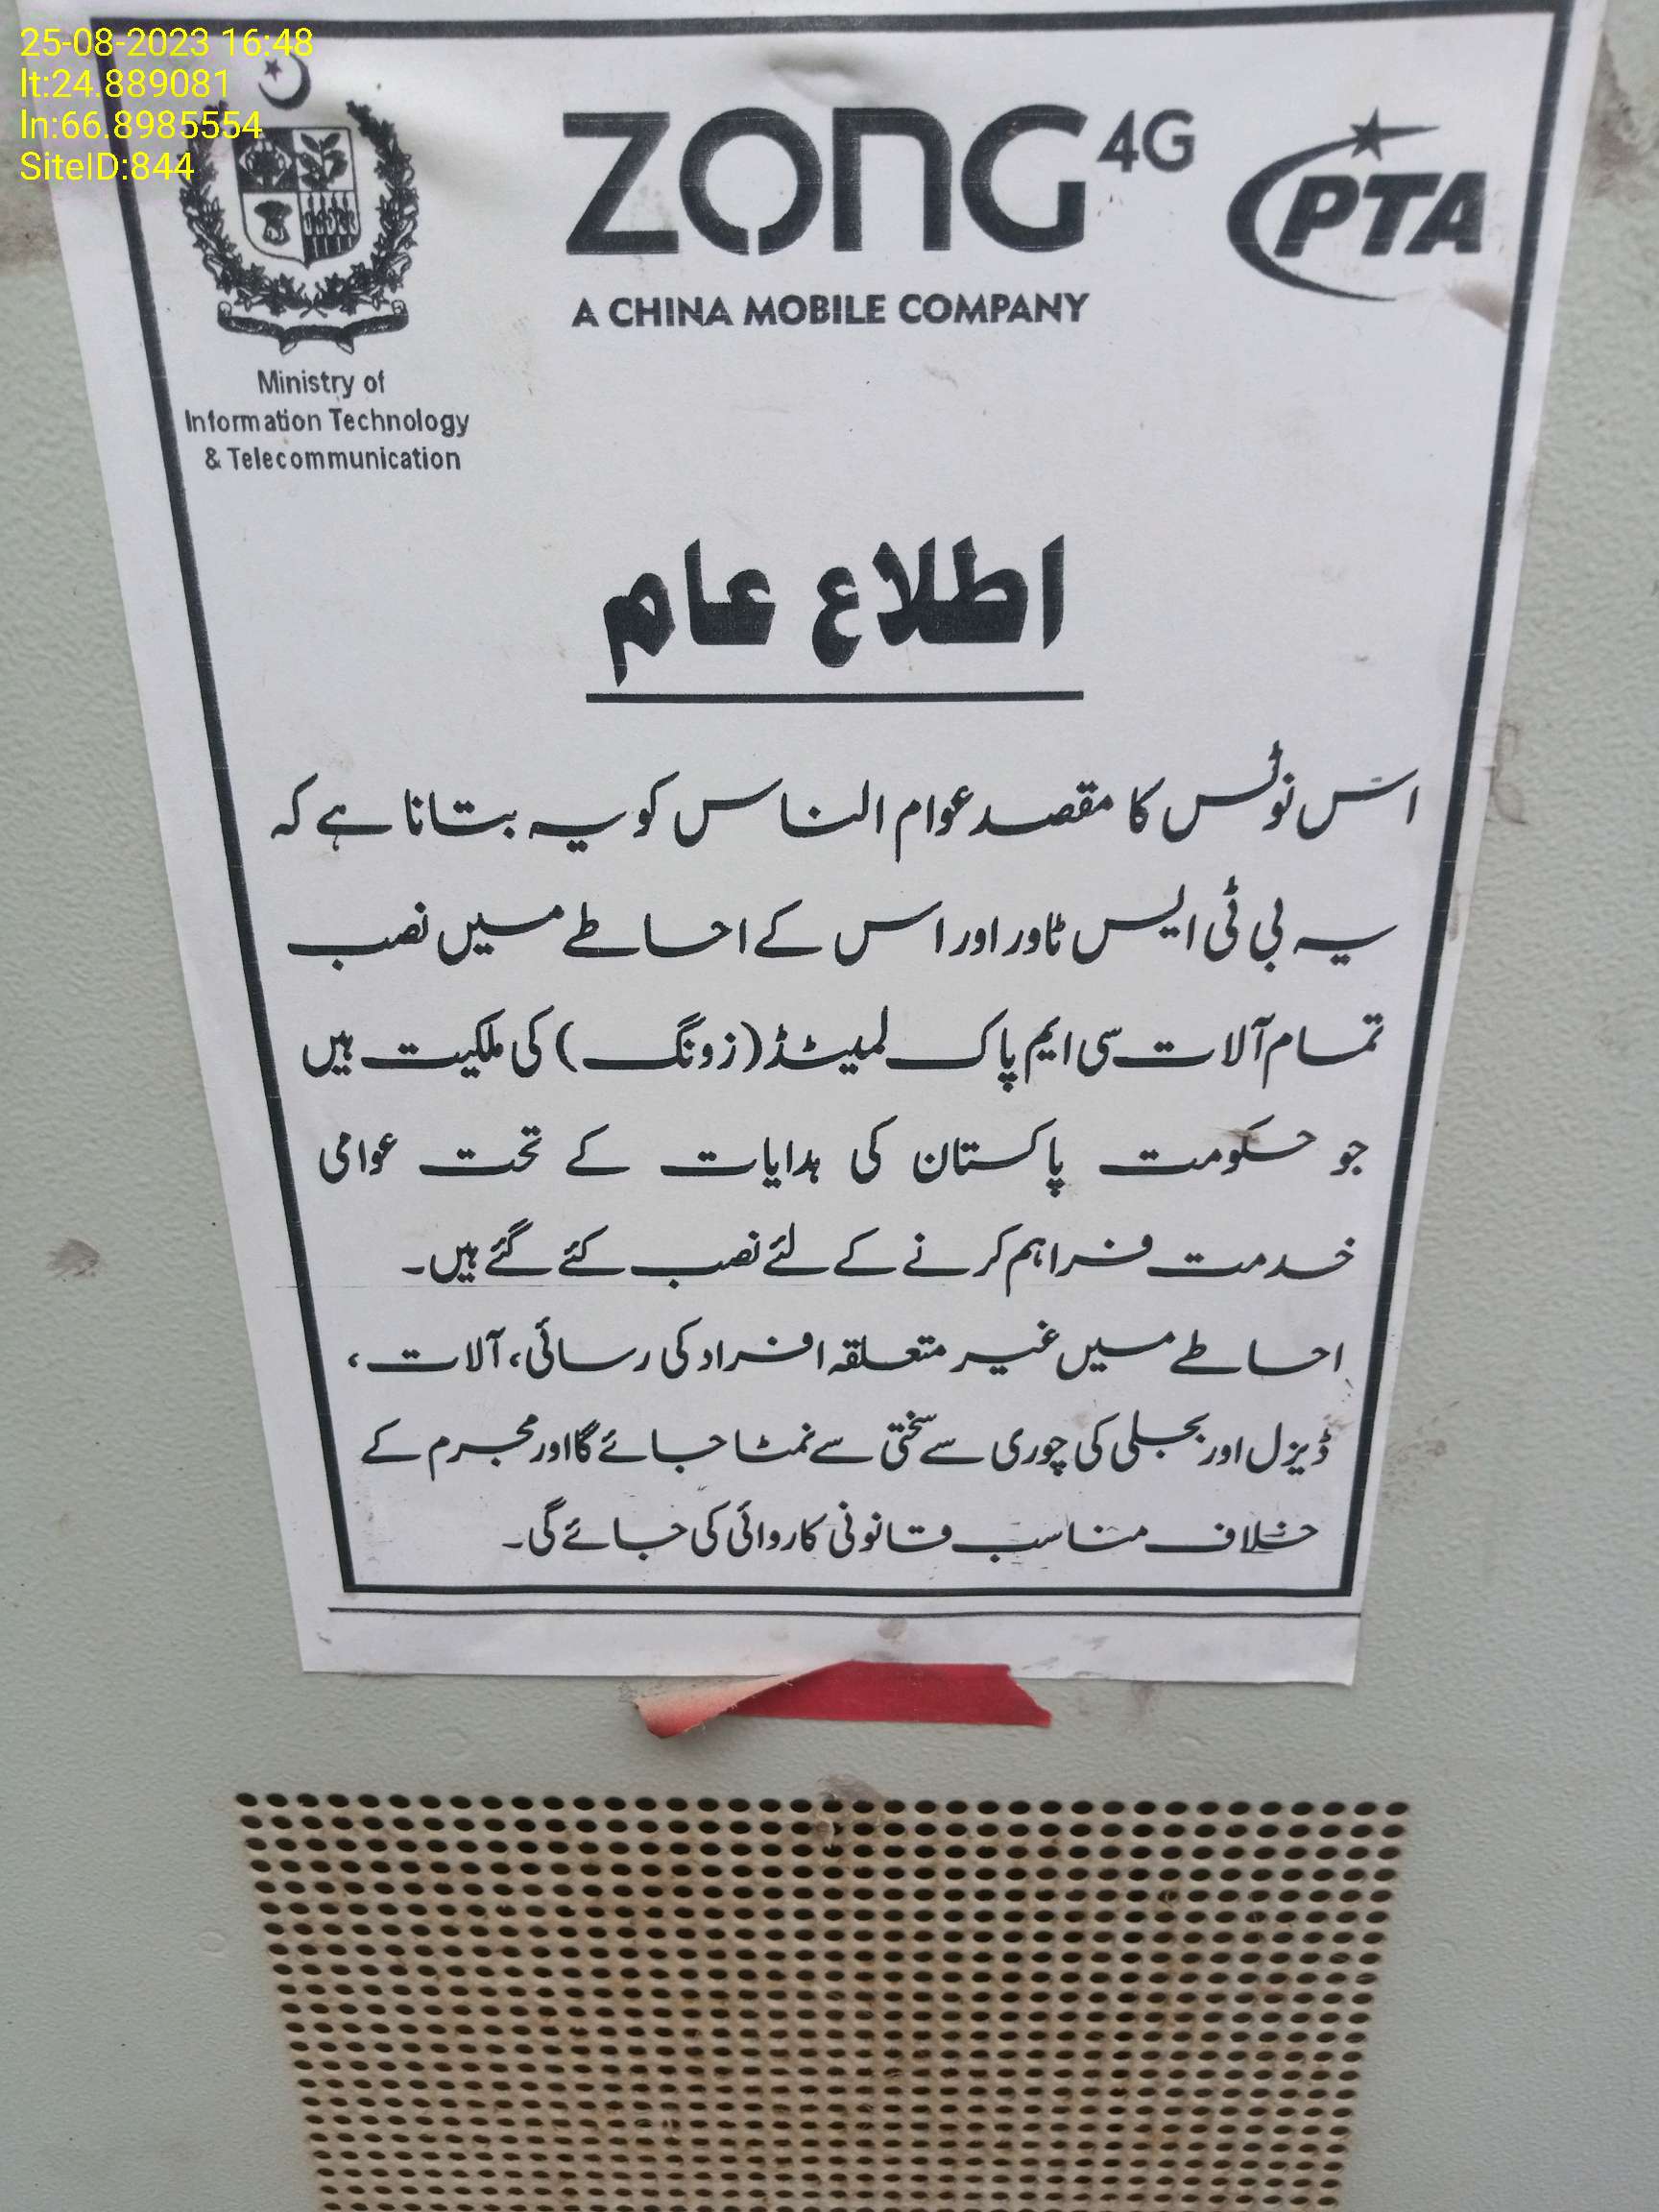 25-08-2023 16:48
lt:24.889081
ln:66.8985554
SiteID:844
ZONG 4G
A CHINA MOBILE COMPANY
PTA
Ministry of
Information Technology
& Telecommunication
اطلاع عام
اس نوٹس کا مقصد عوام الناس کو یہ بتانا ہے کہ
یہ بی ٹی ایس ٹاور اور اس کے احاطے میں نصب
تمام آلات سی ایم پاک لمیٹڈ (زونگ) کی ملکیت ہیں
جو حکومت پاکستان کی ہدایات کے تحت عوامی
خدمت فراہم کرنے کے لئے نصب کئے گئے ہیں۔
احاطے میں غیر متعلقہ افراد کی رسائی، آلات،
ڈیزل اور بجلی کی چوری سے سختی سے نمٹا جائے گا اور مجرم کے
خلاف مناسب قانونی کاروائی کی جائے گی۔